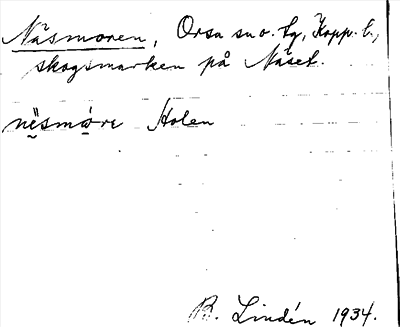 Näsmoren, Orsa sn o. tg, Kopp. l.,
skogsmarken på Näset.
Holen
B. Lindén 1934.